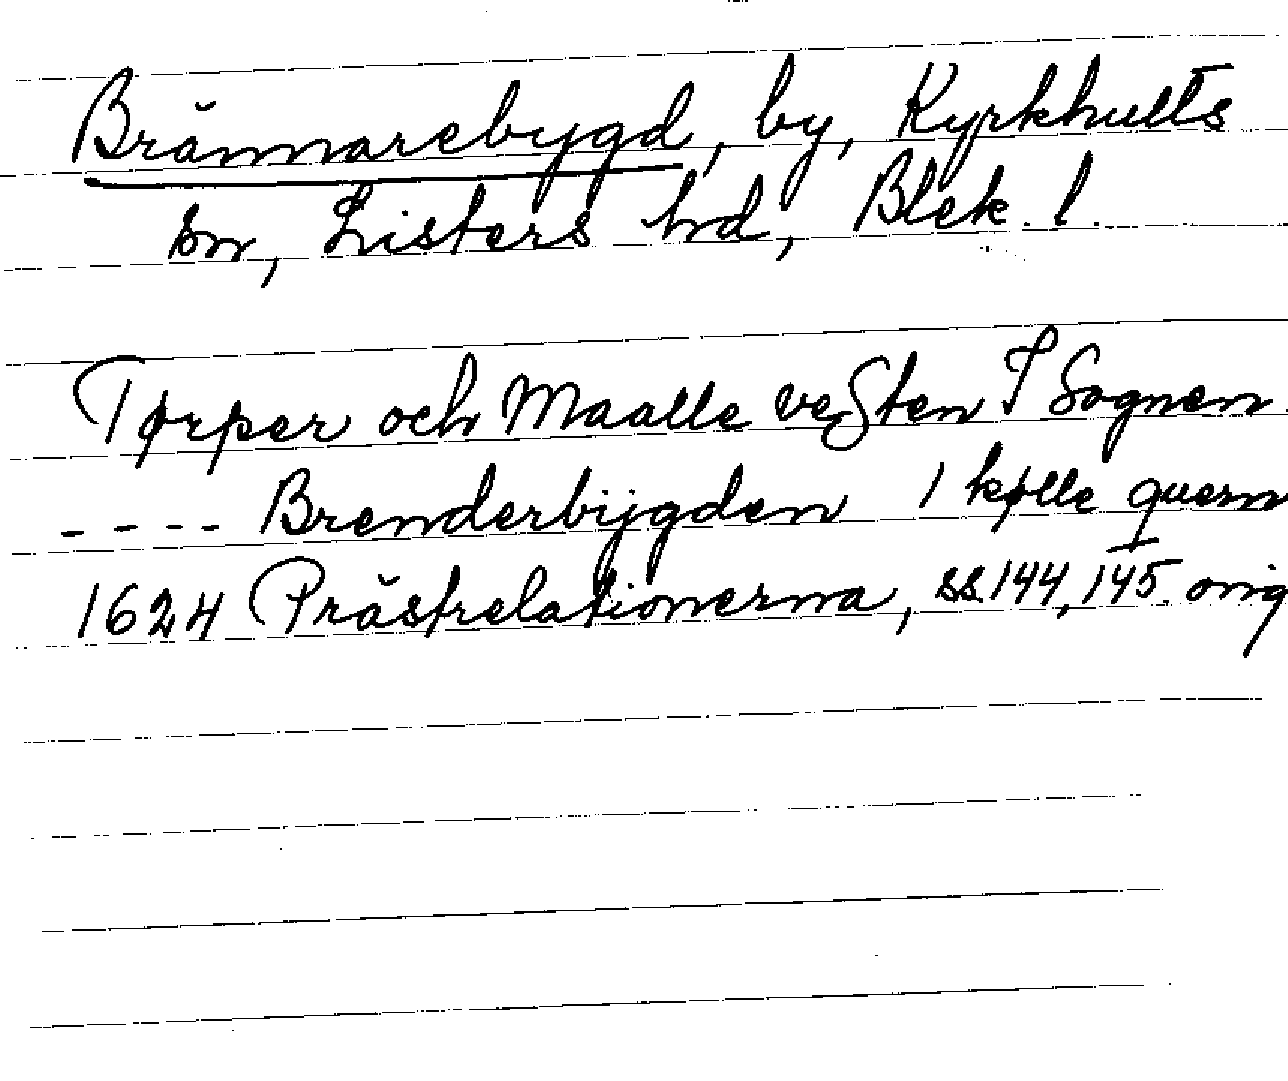 Brännarebygd, by, Kyrkhults
sn, Listers hd, Blek. l.
Tørper och Maalle vesten I Sognen
---- Brenderbÿgden 1 kølle quern
1624 Prästrelationerna, ss. 144, 145. orig